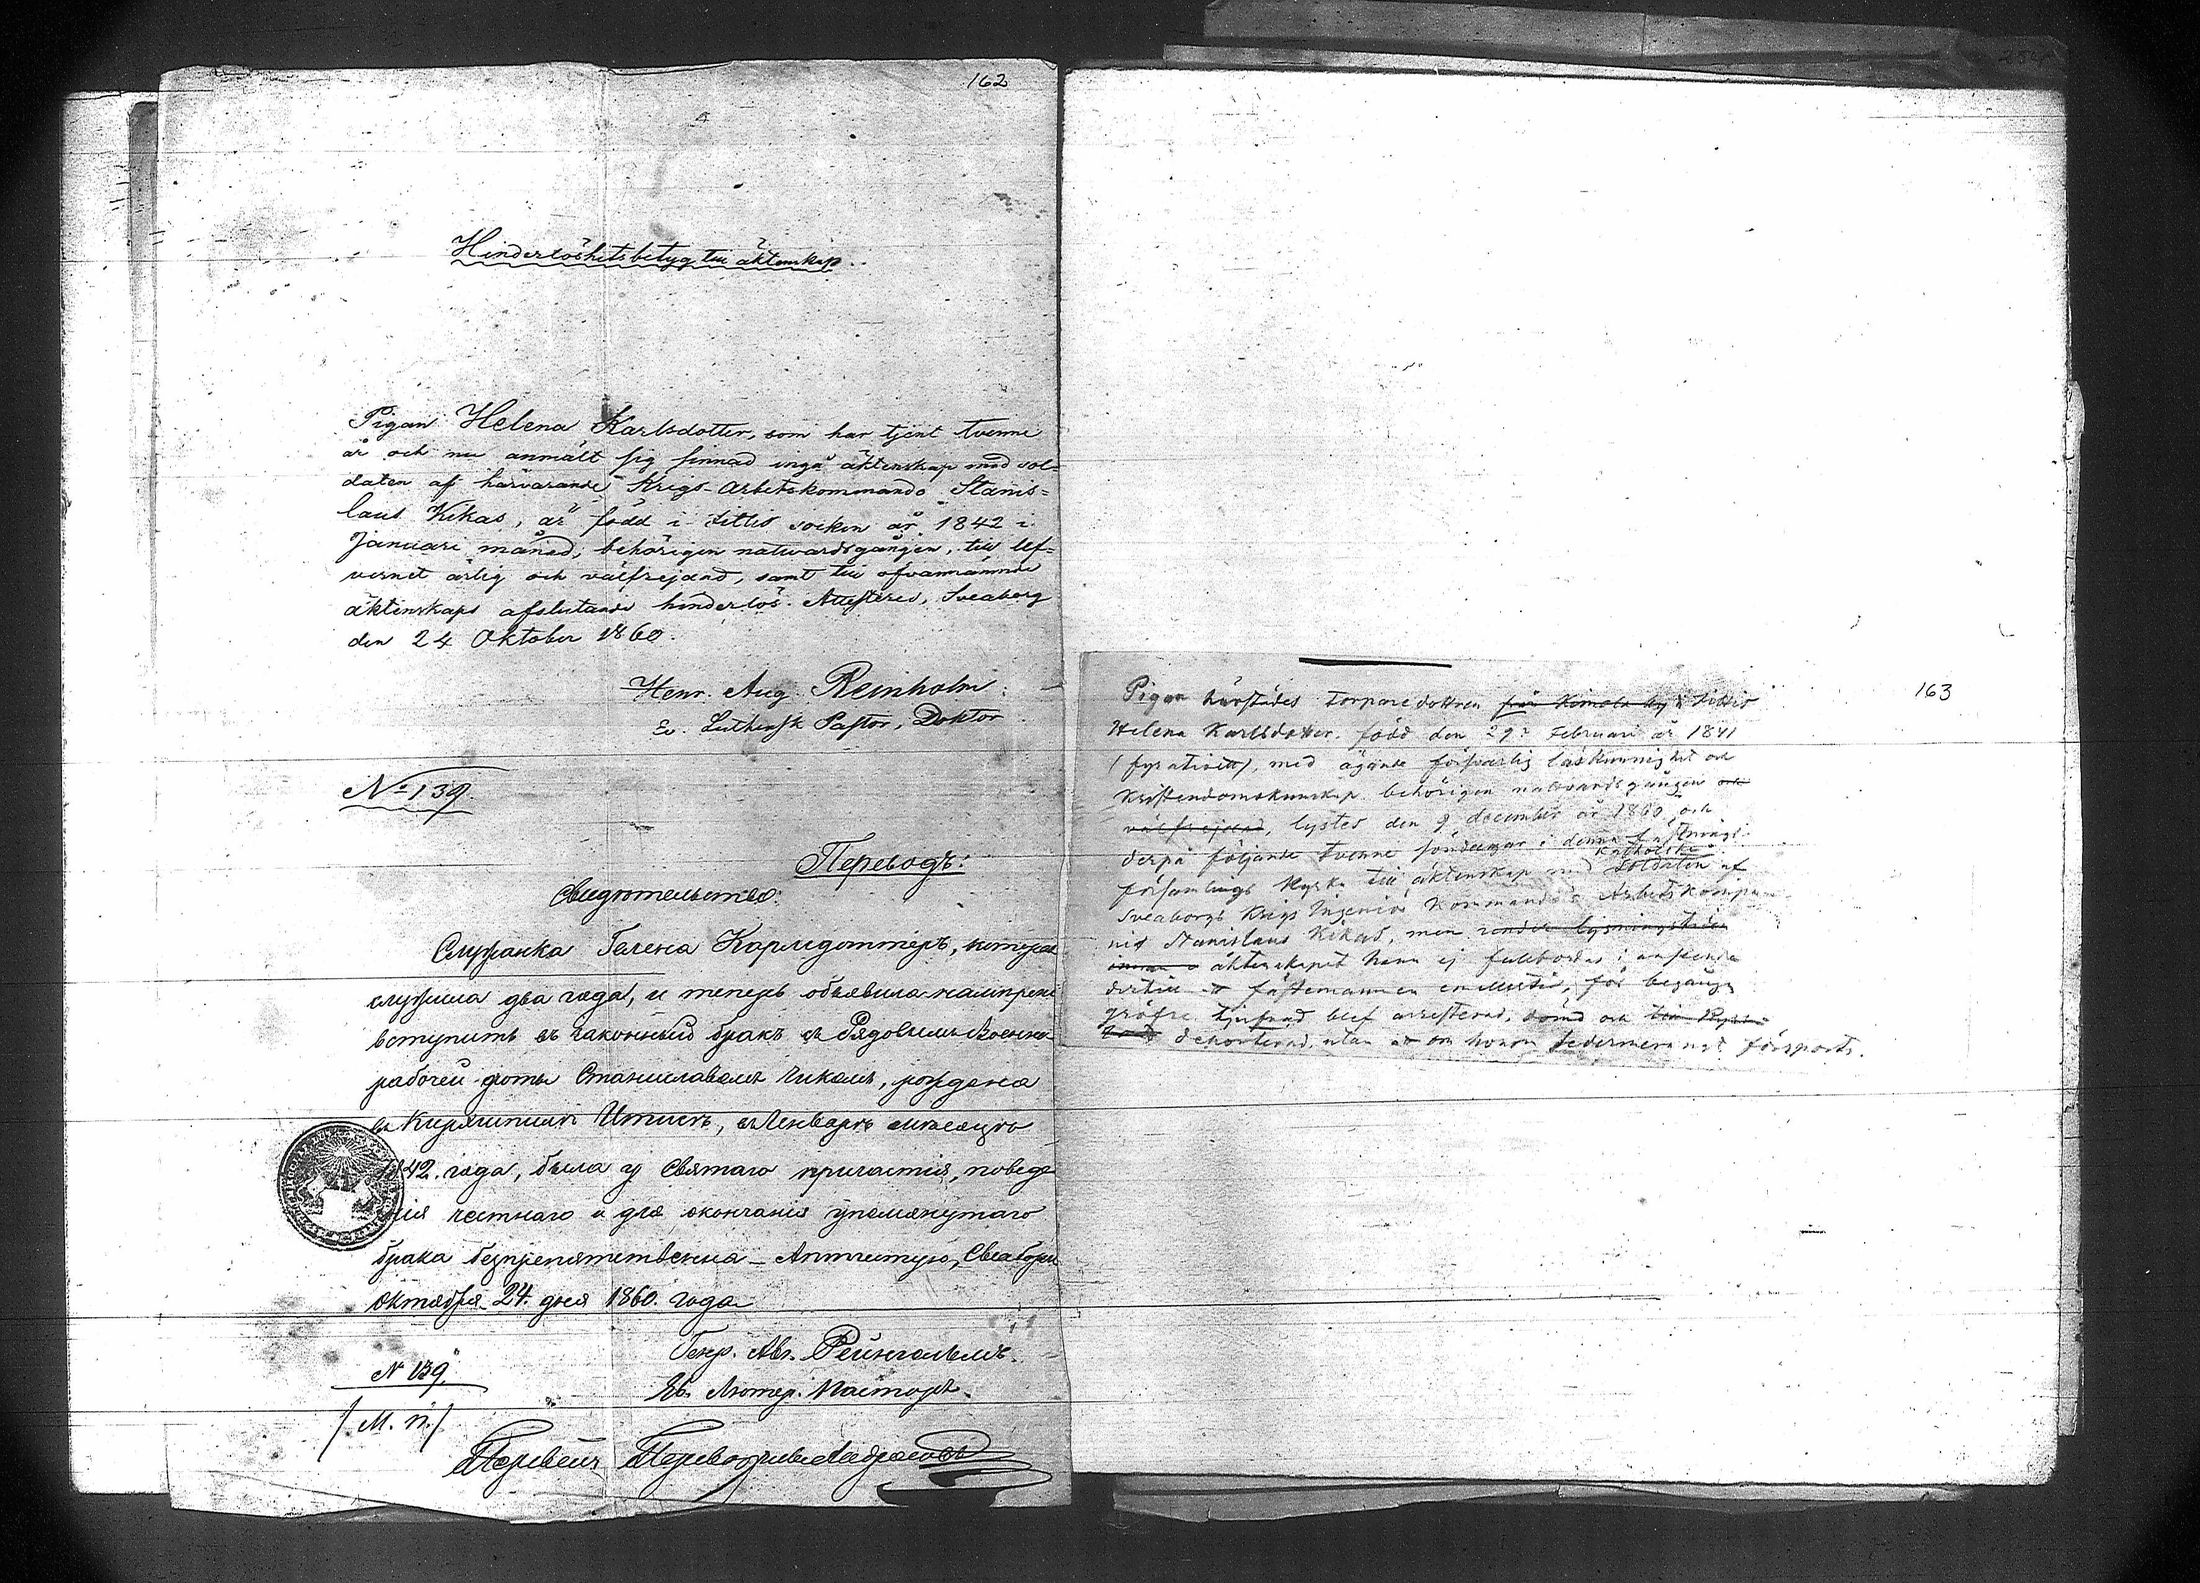 162
Hinderlöshetsbetyg till äktenskap.
Pigan Helena Karlsdotter, som har tjent tvenne
år och nu anmält sig sinnad ingå äktenskap med sol=
daten af härvarande Krigs-Arbetskommando Stanis=
laus Kikas, är född i Ittis socken år 1842 i
Januari månad, behörigen nattvardsgången, till lef=
vernet ärlig och välfrejdad, samt till ofvannämnde
äktenskaps afslutande hinderlös. Attesteras, Sveaborg
den 24 Oktober 1860.
Henr. Aug. Reinholm
Ev. Luthersk Pastor, Doktor
No 139.
Переводъ:
Свидѣтельство:
Служанка Гелена Карлсдоттеръ, которая
служила два года, и теперь объявила намѣрені
вступить въ законный бракъ съ Рядовымъ Военно-
рабочей роты Станиславомъ Кикасъ, рождена
въ Кирхшпилѣ Итисъ, въ Январѣ мѣсяцѣ
1842. года, была у Святаго причастія, поведе
нія честнаго и для окончанія упомянутаго
брака безпрепятственна – Аттестую, Свеаборгъ
Октября 24. дня 1860. года
Генр. Авг. Рейнгольмъ.
Ев. Лютер. Пасторъ.
N 139.
/М. П./
Перевелъ Переводчикъ
163
Pigan härstädes torparedottren från Kimola by i Ittis
Helena Karlsdotter, född den 29 Februari år 1841
(fyratiett), med ägande försvarlig läskunnighet och
Kristendomskunskap behörigen nattvardsgången och
välfrejdad, lystes den 9 december år 1860, och
derpå följande tvenne söndagar i denna fästnings
Katholske
församlings kyrka till äktenskap med Soldaten af
Sveaborgs Krigs Ingeniör Kommando's Arbetskompa
ni Stanislaus Kikas, men under lysningstiden
äktenskapet kann ej fullbordas i anseende
dertill att fästemannen emellertid, för begången
gröfre tjufnad blef arresterad, dömd och till
deporterad, utan att om honom sedermera ngt försports.